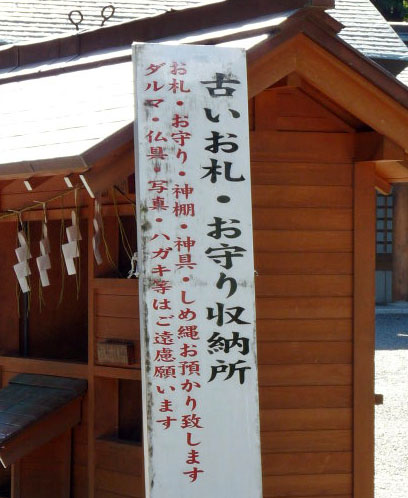 古いお札・お守り収納所
お札・お守り・神棚・神具・しめ縄お預かり致します
ダルマ・仏具・写真・ハガキ等はご遠慮願います